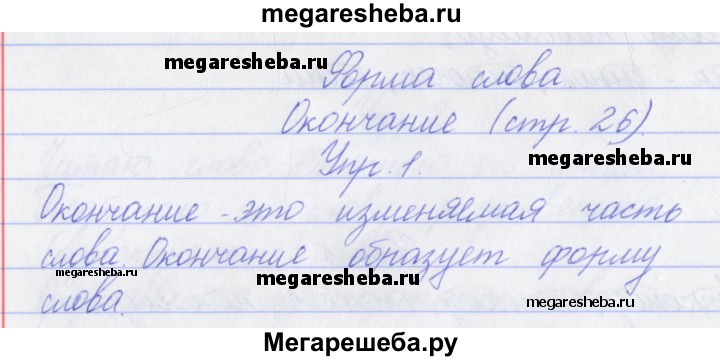 megaresheba.ru
megaresheba.ru
Форма слова.
Окончание (стр. 26).
megaresheba.ru
Упр. 1.
Окончание - это изменяемая часть
слова. Окончание образует форму
megaresheba.ru
megaresheba.ru
слова.
megaresheba.ru
Мегарешеба.ру